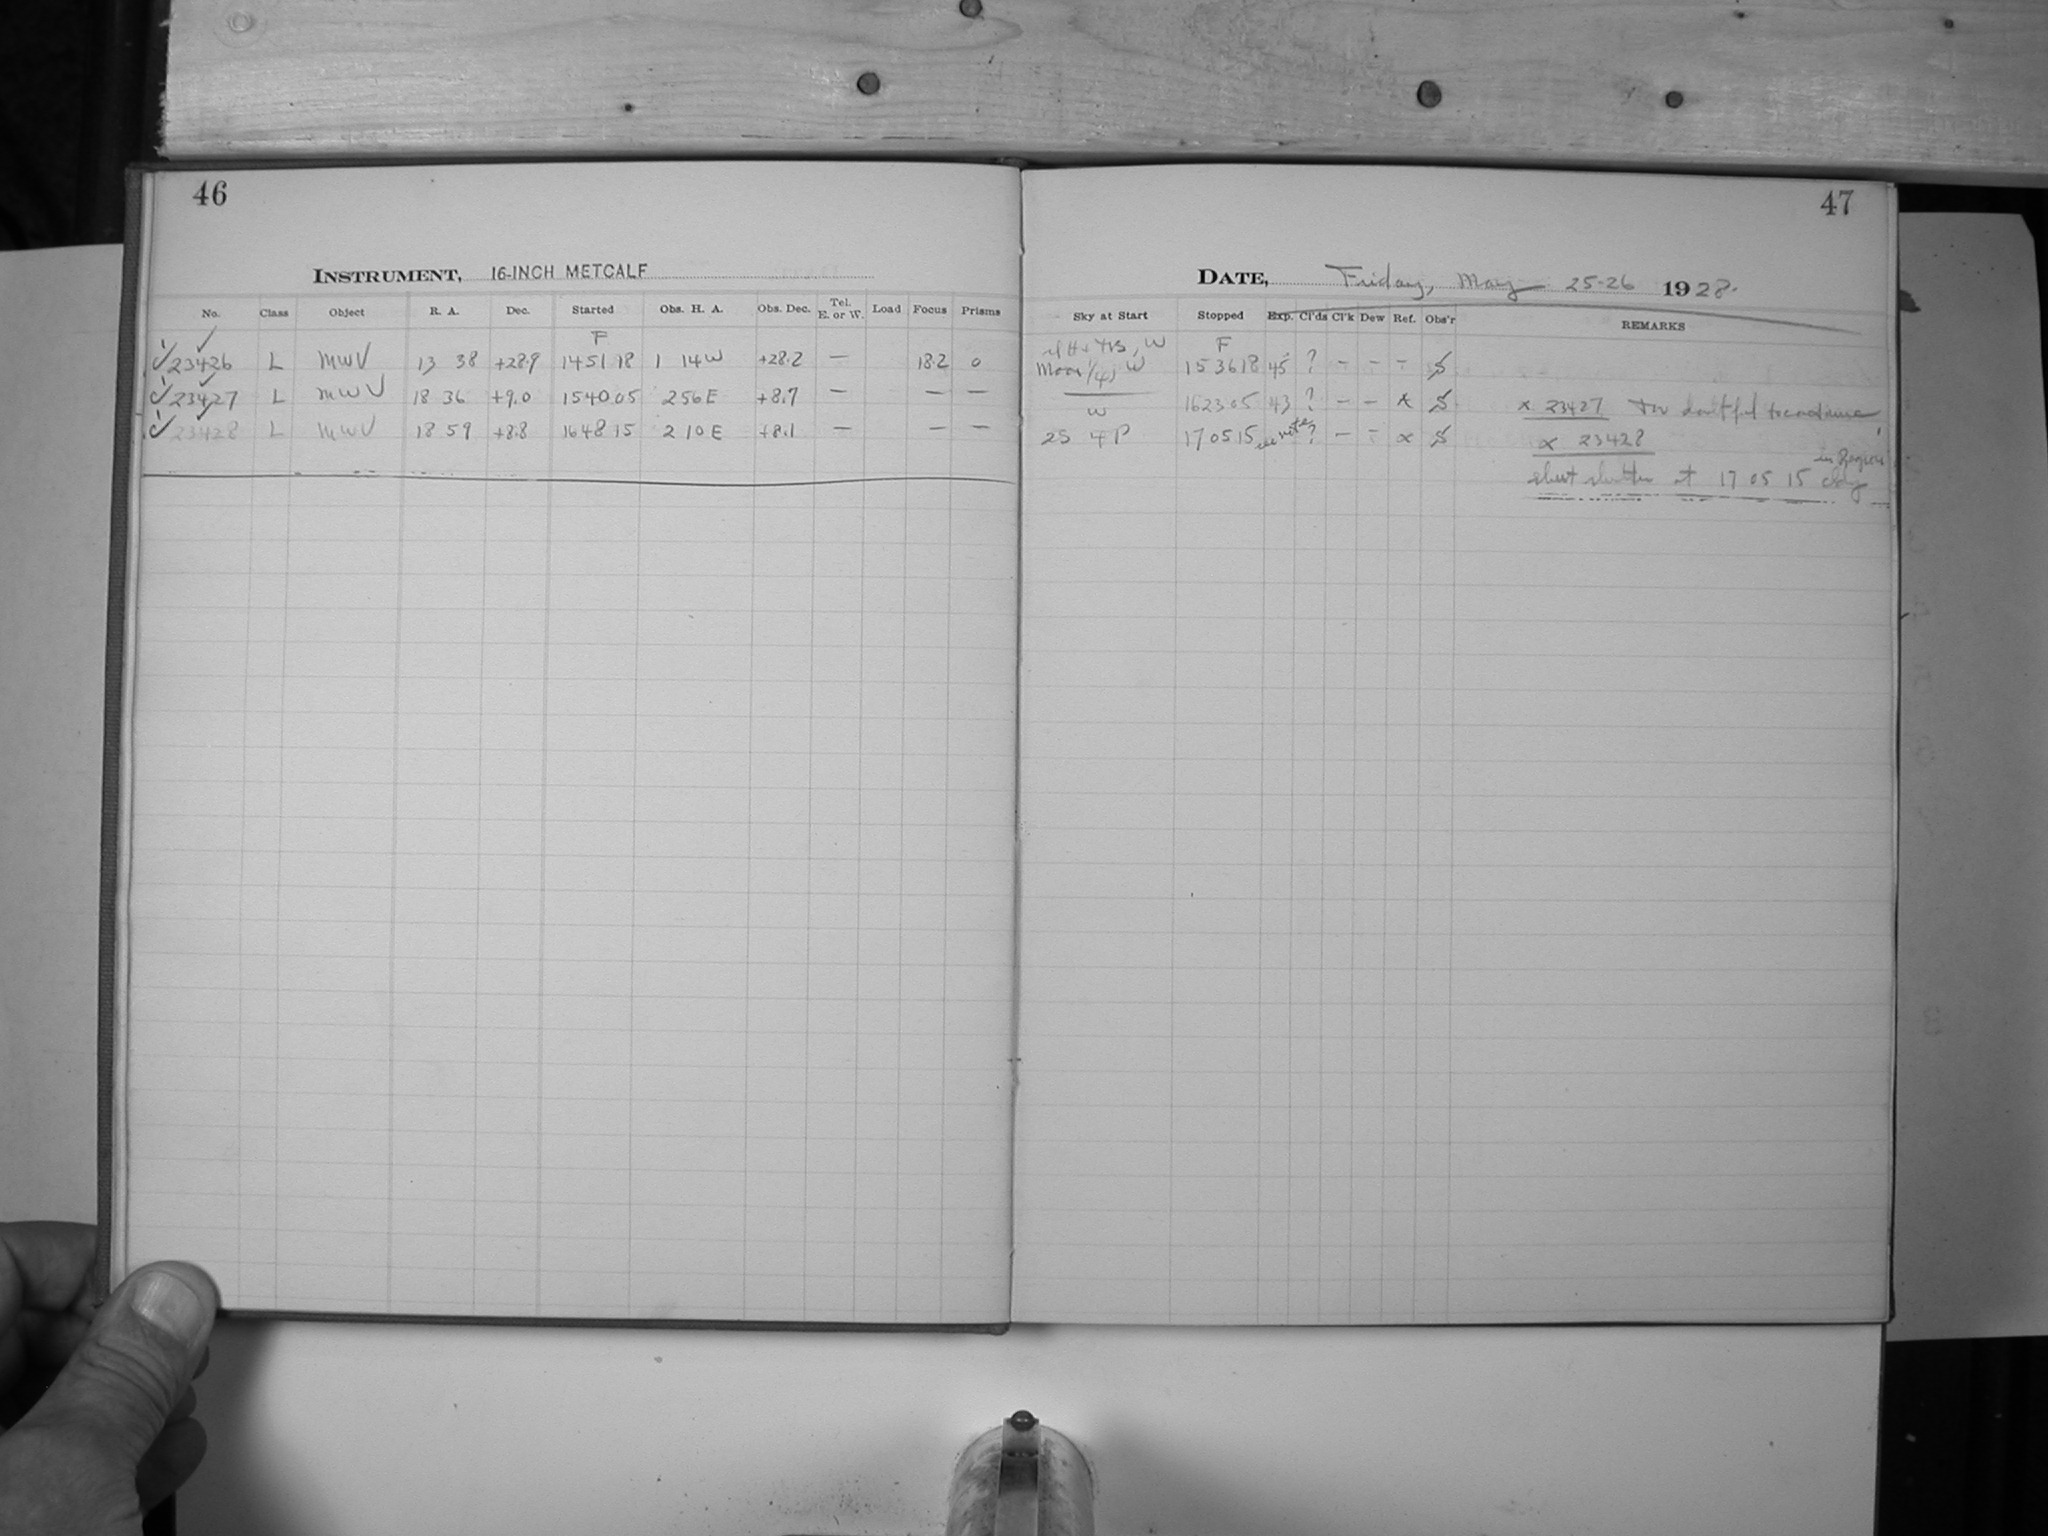 46
INSTRUMENT, 16-INCH METCALF
No. Class Object R. A. Dec. Started Obs. H. A. Obs. Dec. Tel. E. or W. Load Focus Prisms
F
23426 L MWV 13 38 +28.9 14 51 18 1 14 W +28.2 — 18.2 0
23427 L MWV 18 36 +9.0 15 40 05 2 56 E +8.7 — — —
23428 L MWV 18 59 +8.8 16 48 15 2 10 E +8.1 — — —
47
DATE, Friday, May 25-26 1928.
Sky at Start Stopped Exp. Cl'ds Cl'k Dew Ref. Obs'r REMARKS
W F
Moon 1/4, W 15 36 18 45 ? – – –
W 16 23 05 43 ? – – x x 23427 Too doubtful to continue
2S 4P 17 05 15 see note ? – – x x 23428
in Region
shut shutter at 17 05 15 cldy